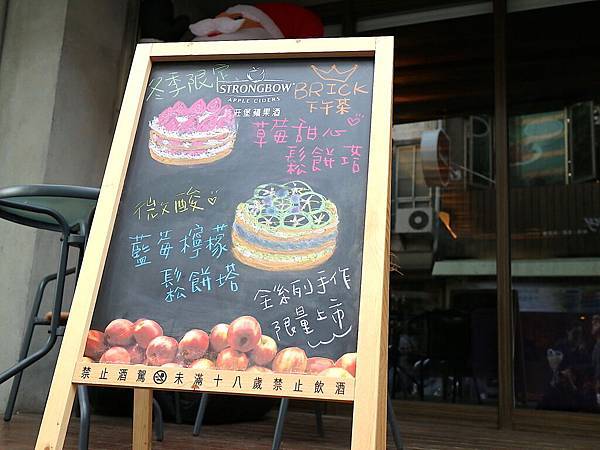 冬季限定
STRONGBOW
APPLE CIDERS
莊堡蘋果酒
BRICK
下午茶
草莓甜心
鬆餅塔
微酸
藍莓檸檬
鬆餅塔
全系列手作
限量上市
禁止酒駕 未滿十八歲禁止飲酒